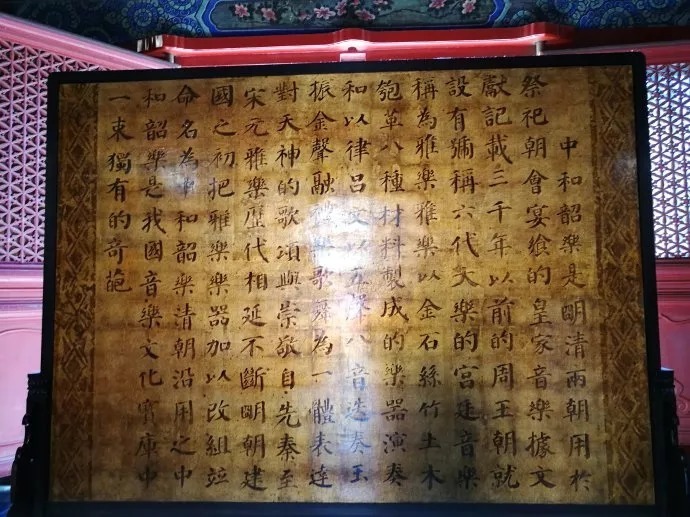 中和韶樂是眀清兩朝用於
祭祀朝會宴飨的皇家音樂據文
獻記載三千年以前的周王朝就
設有號稱六代大樂的宮廷音樂
稱為雅樂雅樂以金石絲竹土木
匏革八種材料製成的樂器演奏
和以律呂文以五聲八音迭奏玉
振金聲融禮樂歌舞為一體表達
對天神的歌頌與崇敬自先秦至
宋元雅樂歷代相延不斷眀朝建
國之初把雅樂樂器加以改組竝
命名為中和韶樂清朝沿用之中
和韶樂是我國音樂文化寶庫中
一束獨有的奇葩